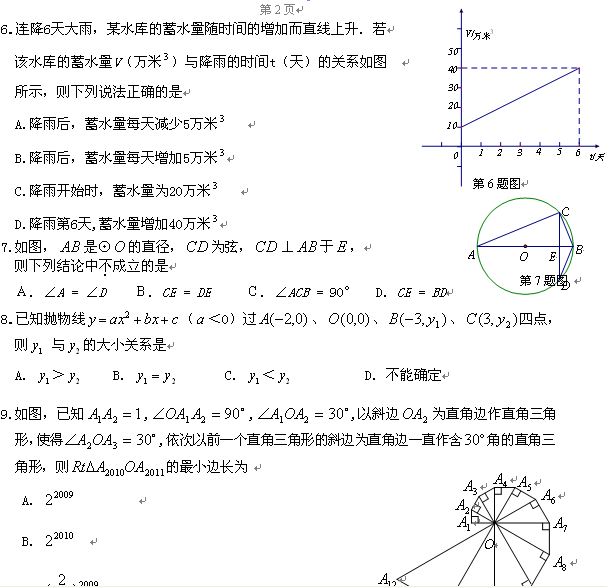 第2页
6.连降6天大雨，某水库的蓄水量随时间的增加而直线上升．若
该水库的蓄水量V(万米³)与降雨的时间t(天)的关系如图
所示，则下列说法正确的是
A.降雨后，蓄水量每天减少5万米³
B.降雨后，蓄水量每天增加5万米³
C.降雨开始时，蓄水量为20万米³
D.降雨第6天,蓄水量增加40万米³
V/万米³
50
40
30
20
10
0 1 2 3 4 5 6 t/天
第6题图
7.如图，AB是⊙O的直径，CD为弦，CD⊥AB于E，
则下列结论中不成立的是
A. ∠A = ∠D B. CE = DE C. ∠ACB = 90° D. CE = BD
C
A O E B
D
第7题图
8.已知抛物线y=ax²+bx+c(a<0)过A(-2,0)、O(0,0)、B(-3,y₁)、C(3,y₂)四点，
则y₁ 与y₂的大小关系是
A. y₁>y₂ B. y₁=y₂ C. y₁<y₂ D. 不能确定
9.如图，已知A₁A₂=1,∠OA₁A₂=90°,∠A₁OA₂=30°,以斜边OA₂为直角边作直角三角
形,使得∠A₂OA₃=30°,依次以前一个直角三角形的斜边为直角边一直作含30°角的直角三
角形，则RtΔA₂₀₁₀OA₂₀₁₁的最小边长为
A. 2²⁰⁰⁹
B. 2²⁰¹⁰
A₄
A₃ A₅
A₂ A₆
A₁ A₇
O
A₈
A₁₂